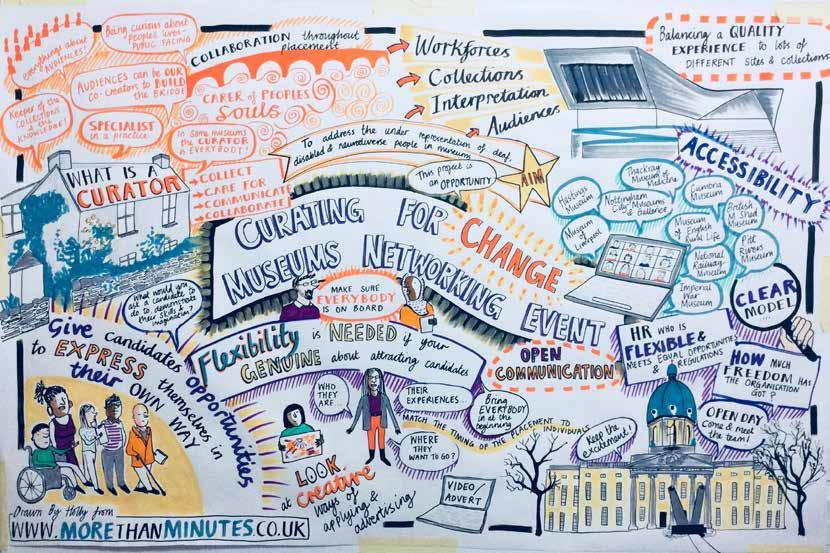 Everything about
AUDIENCES!
Being curious about
people's lives -
PUBLIC FACING
AUDIENCES can be OUR
co-creators to BUILD
the BRIDGE
Keeper of the
COLLECTIONS
the
KNOWLEDGE!
SPECIALIST
in a practice
In some museums
the CURATOR
is EVERYBODY!
WHAT IS A
CURATOR
→ COLLECT
→ CARE FOR
→ COMMUNICATE
→ COLLABORATE
COLLABORATION throughout
placement
CARER OF PEOPLES
SOULS
Workforces
Collections
Interpretation
Audiences
Balancing a QUALITY
EXPERIENCE to lots of
DIFFERENT SITES & COLLECTIONS
To address the under representation of deaf,
disabled & neurodiverse people in museums
AIM
This project is
an OPPORTUNITY
ACCESSIBILITY
CURATING FOR CHANGE
MUSEUMS NETWORKING EVENT
Hastings
Museum
Nottingham
City Museums
& Galleries
Thackray
Museum of
Medicine
Cumbria
Museum
British
M Shed
Museum
Museum
of
Liverpool
Museum
of English
Rural Life
Pitt
Rivers
Museum
National
Railway
Museum
Imperial
War
Museum
CLEAR
MODEL
MAKE SURE
EVERYBODY
IS ON BOARD
What would you
ask a candidate to
do to demonstrate
their skills &
imagination?
Flexibility is NEEDED if your
GENUINE about attracting candidates
OPEN
COMMUNICATION
HR WHO IS
FLEXIBLE &
MEETS EQUAL OPPORTUNITIES
& REGULATIONS
HOW MUCH
FREEDOM HAS
THE ORGANISATION
GOT?
Give candidates opportunities
to EXPRESS themselves in
their OWN WAY
WHO
THEY
ARE...
THEIR
EXPERIENCES...
WHERE
THEY
WANT TO GO?
Bring
EVERYBODY
in at the
beginning
MATCH THE TIMING OF THE PLACEMENT TO INDIVIDUALS
Keep the
excitement!
OPEN DAY
Come & meet
the team!
LOOK
at creative
ways of
applying &
advertising
VIDEO/
ADVERT
Drawn By Holly from
WWW.MORETHANMINUTES.CO.UK